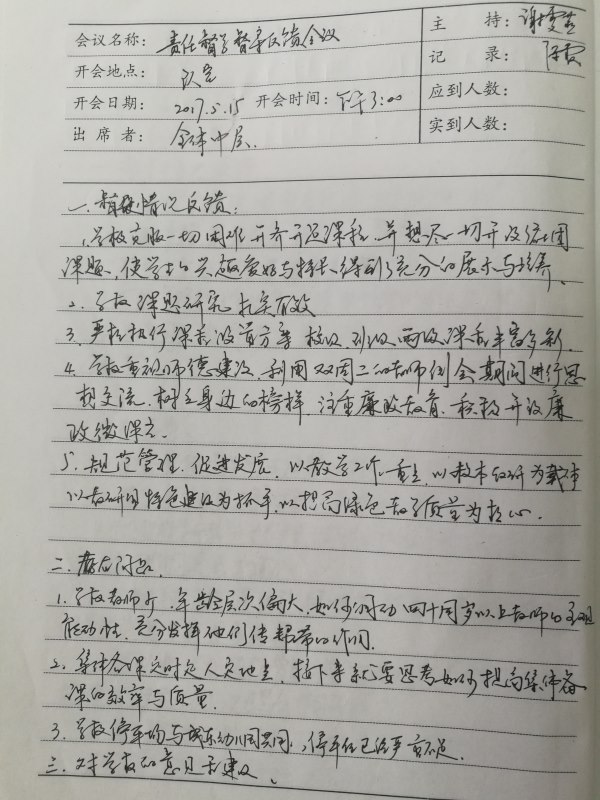 会议名称： 责任督学督导反馈会议
主 持：谢
开会地点：
记 录：
开会日期： 2017.5.15 开会时间：下午3:00
应到人数：
出 席 者： 全体中层.
实到人数：
一、情况反馈：
1.学校克服一切困难开齐开足课程,并想尽一切开设
课题,使学生的兴趣爱好与特长得到了充分的展示与培养。
2.学校课题研究扎实有效
3.严格执行课程设置方案 校级,班级,两级课程丰富多彩.
4.学校重视师德建设.利用双周二的教师例会期间进行思
想交流.树立身边的榜样 注重廉政教育.积极开设廉
政微课堂.
5.规范管理.促进发展.以教学工作重点,以校本教研为载体
以教研组特色建设为抓手,以提高绿色教学质量为核心.
二.存在问题.
1.学校教师年龄层次偏大,如何调动四十周岁以上教师的主观
能动性.充分发挥他们传帮带的作用.
2.集体备课定时定人定地点.接下来就要思考如何提高集体备
课的效率与质量.
3.学校停车场与城东幼儿园共同,停车位已经严重不足.
三.对学校的意见和建议.